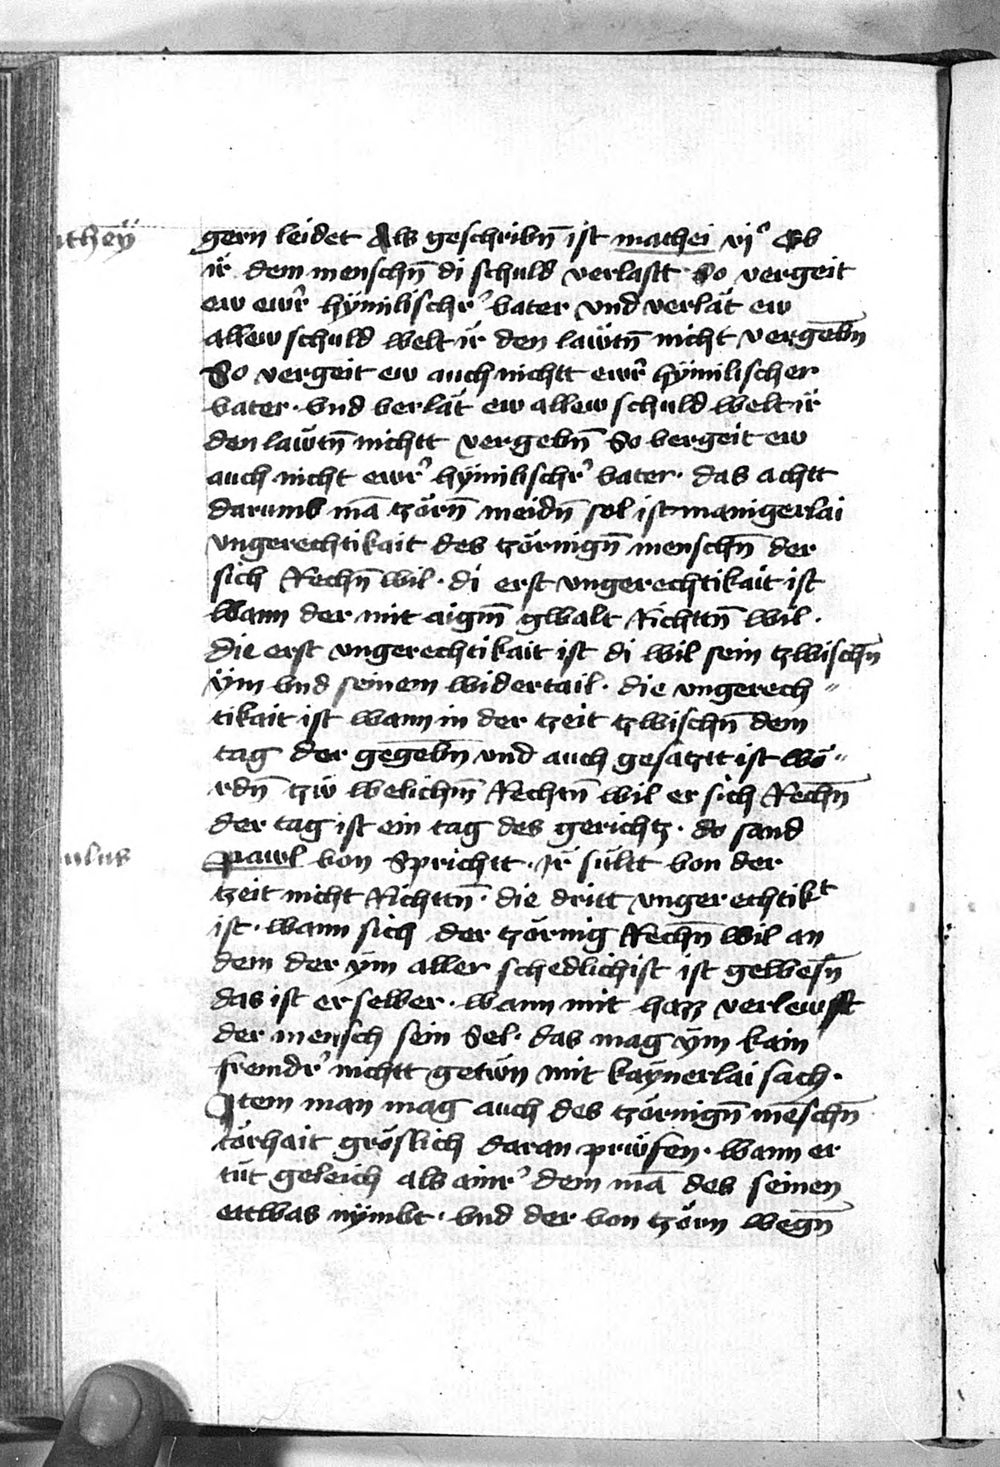 they̎
gern leidet Als geschribn̄ ist mathei vj° Ob
ir̈ dem menschn̄ di schuld verlastt So vergeit
ew ewr̓ hÿmilischr̓ vater vnd verlät ew
allew schuld welt ir̈ den lawtn̄ nicht vergebn̄
So vergeit ew auch nichtt ewr̓ hÿmilischer
vater · vnd verlät ew allew schuld welt ir̈
den lawtn̄ nichtt vergebn̄ So vergeit ew
auch nicht ewr̓ hÿmilischr̓ vater · das achtt
darumb mā tzörn̄ meidn̄ sol ist manigerlai
vngerechtikait des tzörnign̄ menschn̄ der
sich Rechn̄ wil · di erst vngerechtikait ist
wann der mit aigm̄ gwalt Richttn̄ wil ·
die erst vngerechtikait ist di wil sein tzwischn̄
ÿm vnd seinem widertail · die vngerech〃
tikait ist wann in der tzeit tzwischn̄ dem
tag der gegebn̄ vnd auch gesätztt ist wö〃
rdn̄ tzẅ welichm̄ Rechtn̄ wil er sich Rechn̄
der tag ist ein tag des gerichtz · do sand
ulus
pawl von Sprichtt · Ir̈ sültt von der
tzeit nicht Richttn̄ · die dritt vngerechtikᵗ
ist · wann sich der tzörnig Rechn̄ wil an
dem der ÿm aller schedlichist ist gewesn̄
das ist er selber · wann mit hazz verlewst
der mensch sein Sel · das mag ÿm kain
fremdr̓ nichtt getẅn mit kaÿnerlai sach ·
Item man mag auch des tzörnign̄ mēschn̄
törhait gröslich daran prẅfen · wann er
tüt geleich als ainr̓ dem mā des seinen
ettwas nÿmbt · vnd der von tzörn wegn̄